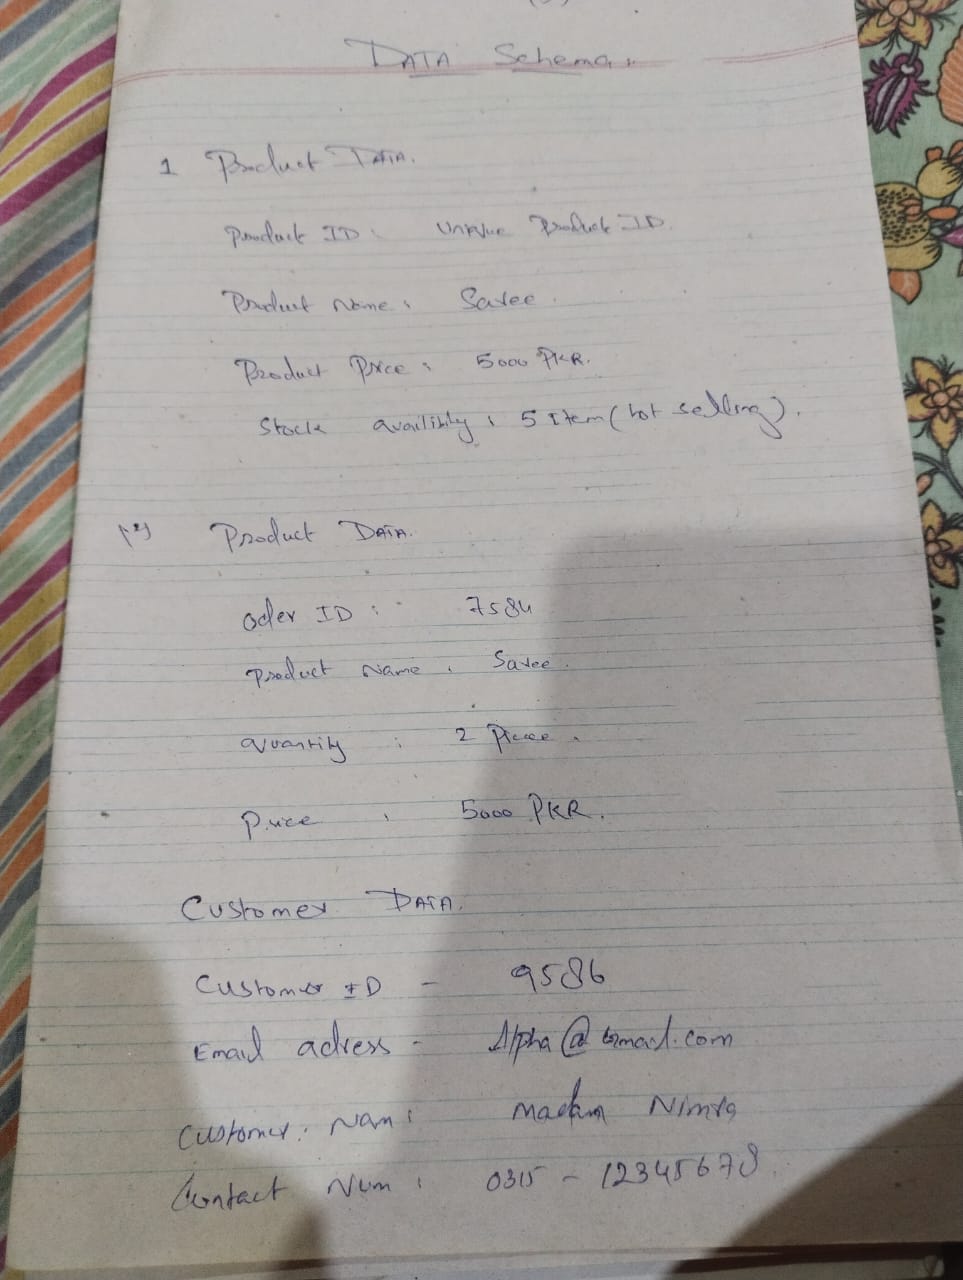 DATA Schema.
1 Product DATA.
Product ID : Unique Product ID.
Product Name : Saree.
Product Price : 5000 PKR.
Stock availibily : 5 Item (hot selling).
Product DATA.
Oder ID : 7584
Product Name : Saree.
Quantity : 2 Piece.
Price : 5000 PKR.
Customer DATA.
Customer ID - 9586
Email adress - Alpha@Gmail.com
Customer. Nam : Madam Nimra
Contact Num : 0315 - 12345678